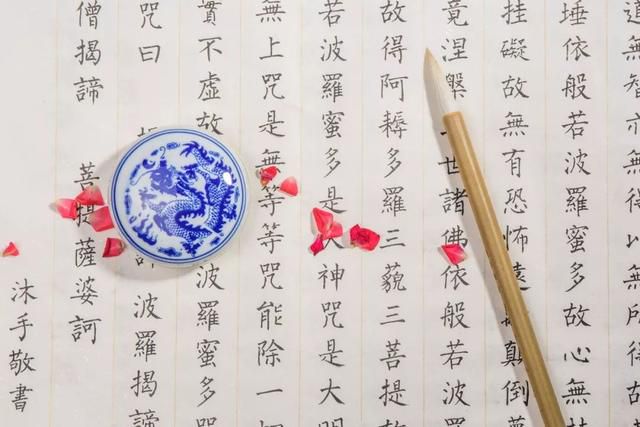 無智亦無得以無所得故
埵依般若波羅蜜多故心無
挂礙故無有恐怖遠顛倒
竟涅槃三世諸佛依般若波羅
故得阿耨多羅三藐三菩提故
若波羅蜜多是大神咒是大明
無上咒是無等等咒能除一
實不虛故 波羅蜜多咒
咒曰 波羅揭諦
僧揭諦 菩提薩婆訶
沐手敬書